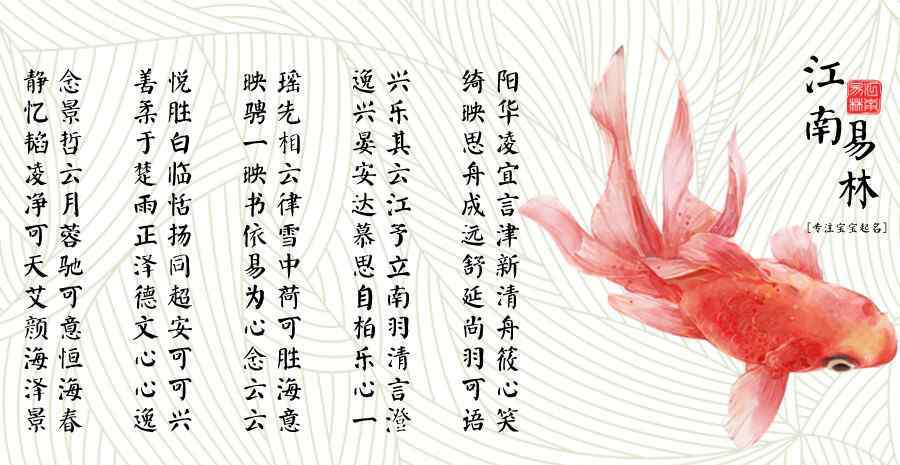 江南
易林
江南易林
[专注宝宝起名]
阳华凌宜言津新清舟筱心笑
绮映思舟成远舒延尚羽可语
兴乐其云江予立南羽清言澄
逸兴晏安达慕思自柏乐心一
瑶先相云律雪中荷可胜海意
映骋一映书依易为心念云云
悦胜白临恬扬同超安可可兴
善柔于楚雨正泽德文心心逸
念景哲云月蓉驰可意恒海春
静忆韬凌净可天艾颜海泽景